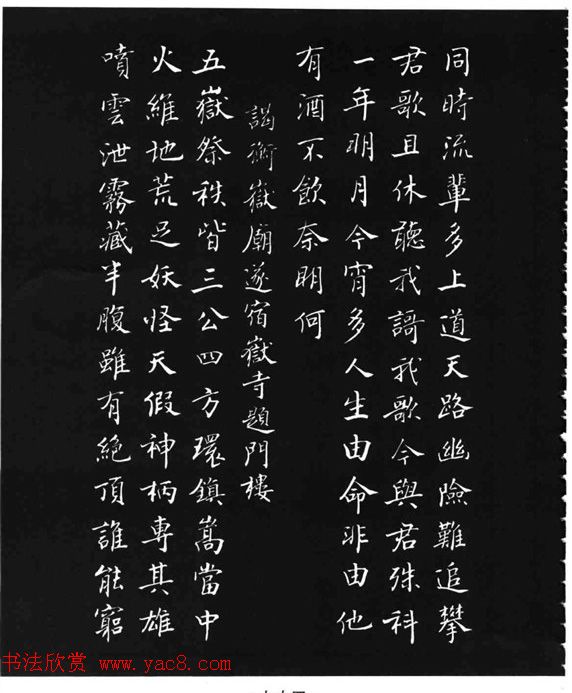 同時流輩多上道天路幽險難追攀
君歌且休聽我謌我歌今與君殊科
一年明月今宵多人生由命非由他
有酒不飲奈明何
謁衡嶽廟遂宿嶽寺題門樓
五嶽祭秩皆三公四方環鎮嵩當中
火維地荒足妖怪天假神柄專其雄
噴雲泄霧藏半腹雖有絕頂誰能窮
书法欣赏 www.yac8.com